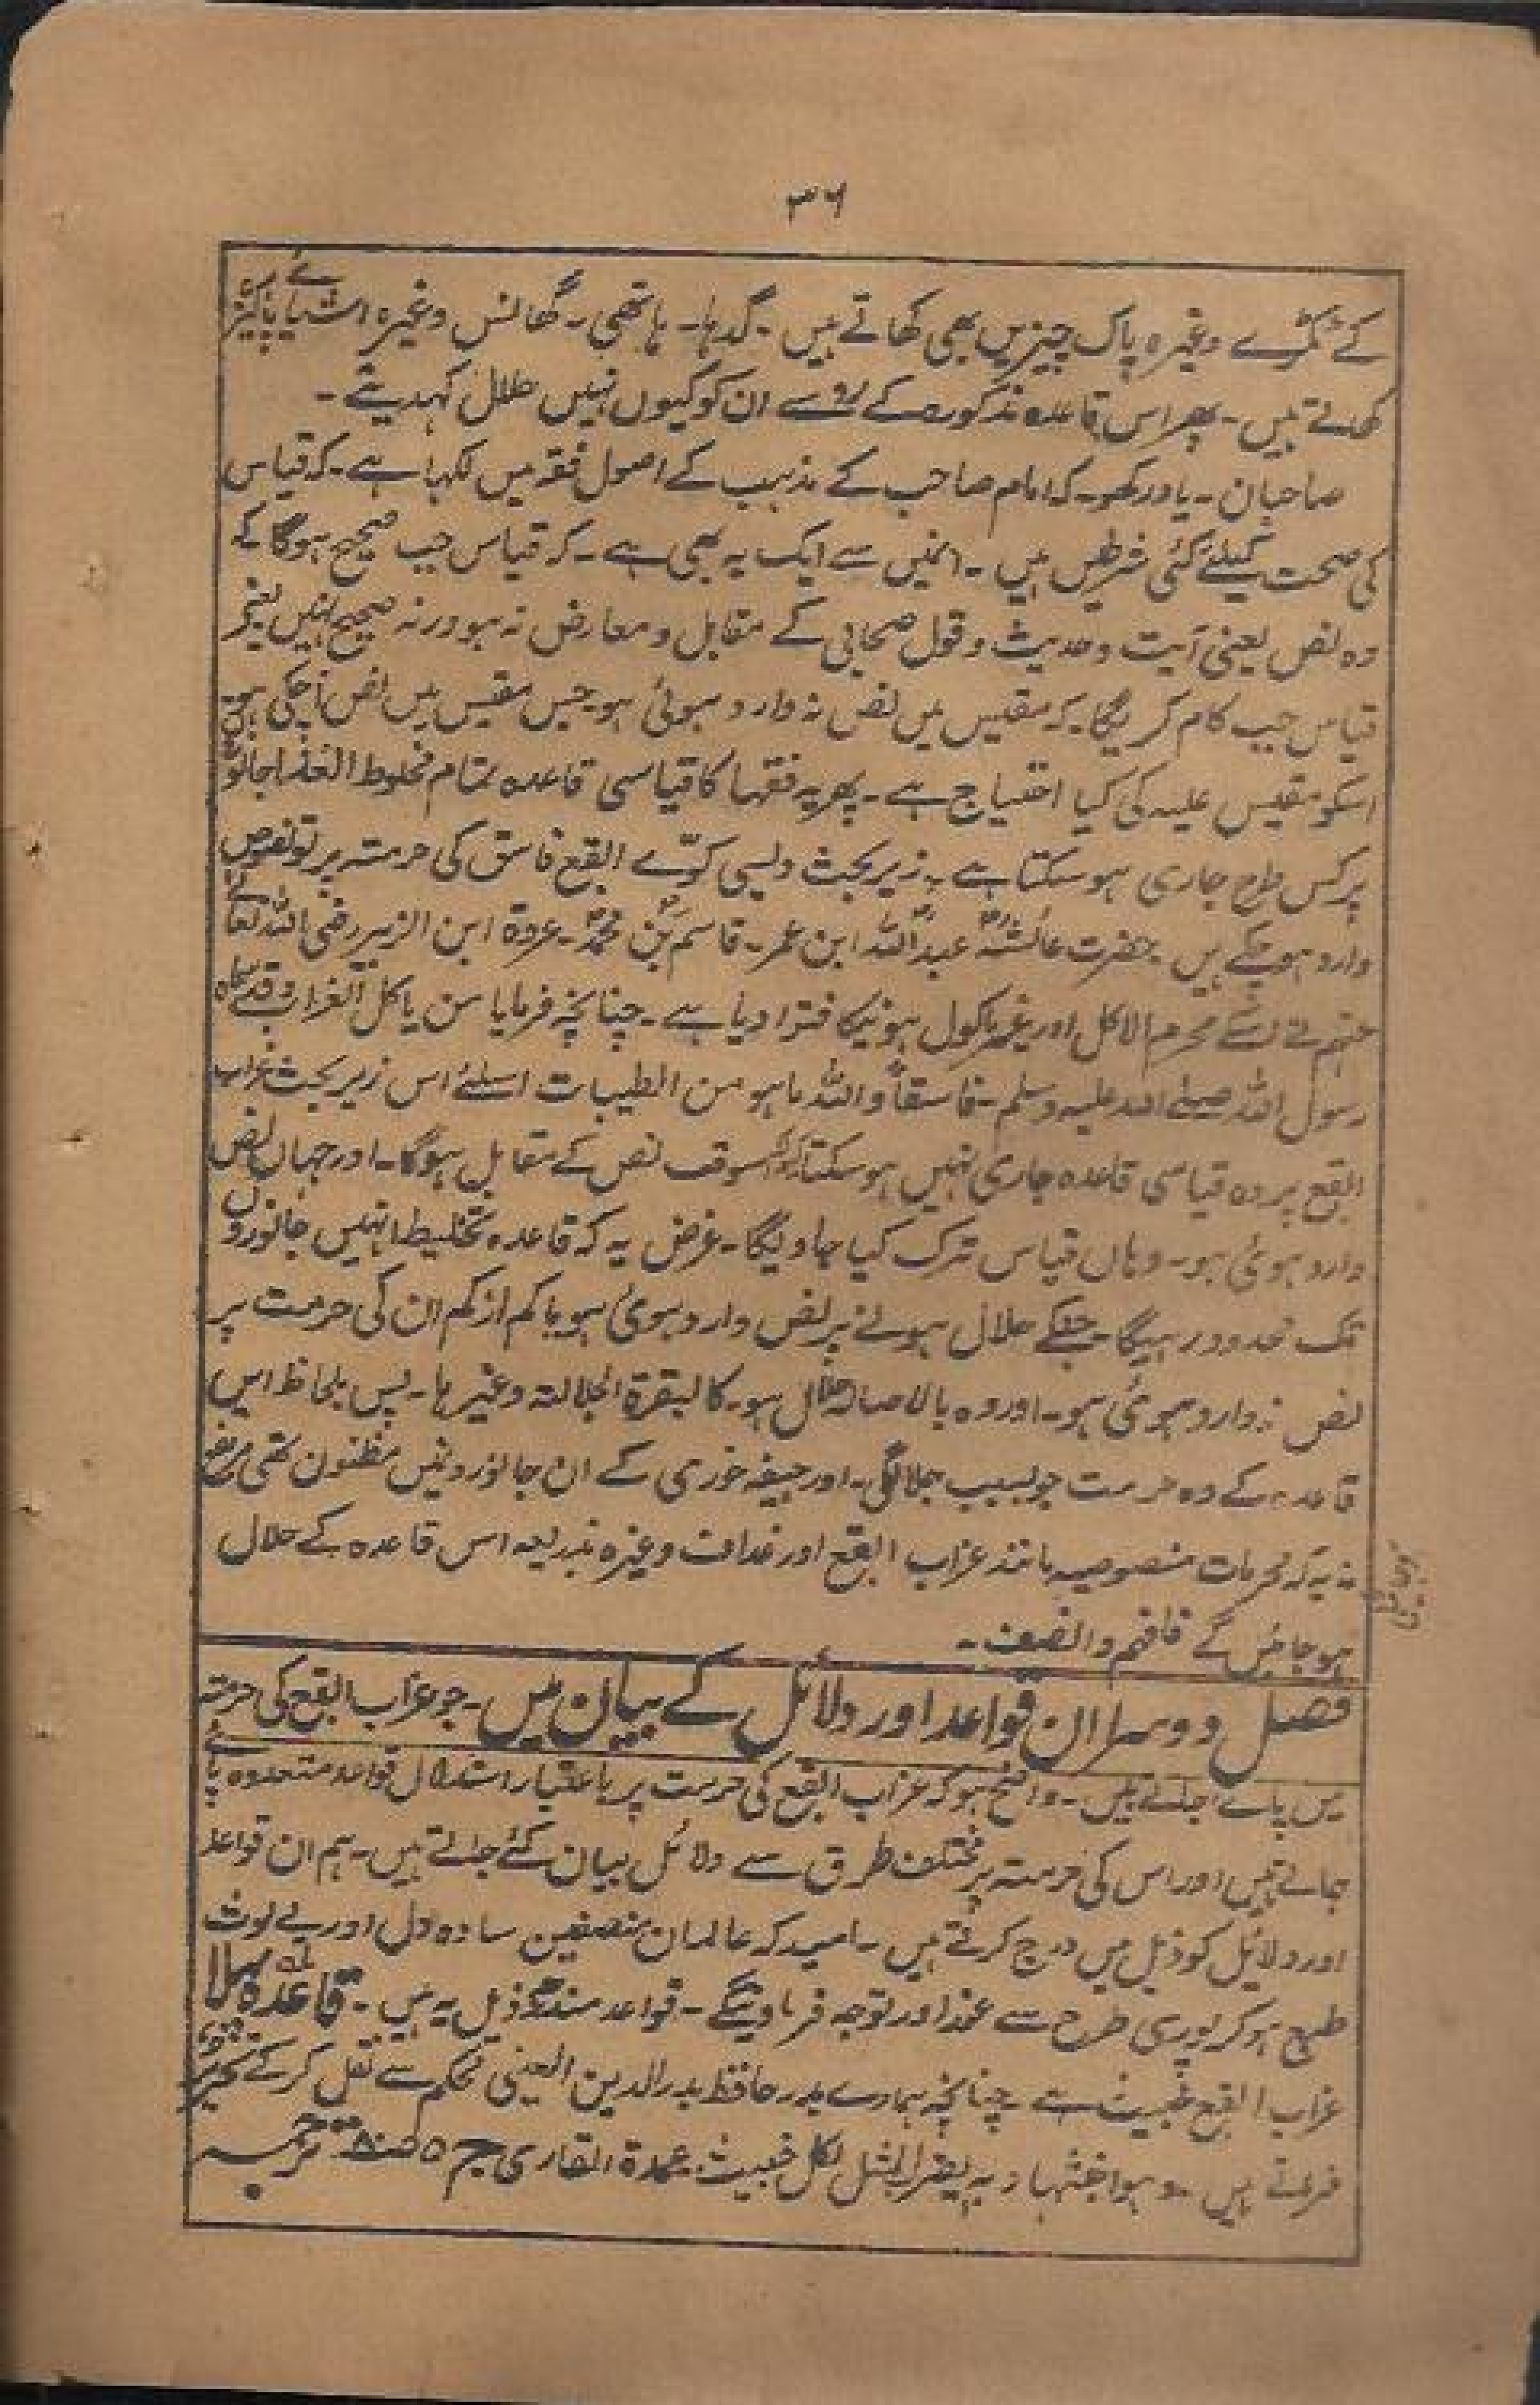 ۳۶
کے ٹکڑے وغیرہ پاک چیزیں بھی کھاتے ہیں ۔ گدہا ۔ ہاتھی ۔ گھانس وغیرہ اشیائے پاکیزہ
کھاتے ہیں ۔ پھر اس قاعدہ مذکورہ کے رو سے ان کو کیوں نہیں حلال کہدیتے ۔
صاحبان ۔ یاد رکھو ۔ کہ امام صاحب کے مذہب کے اصول فقہ میں لکہا ہے ۔ کہ قیاس
کی صحت کیلئے کئی شرطیں ہیں ۔ انمیں سے ایک یہ بھی ہے ۔ کہ قیاس جب صحیح ہوگا کہ
وہ نص یعنی آیت وحدیث وقول صحابی کے مقابل ومعارض نہ ہو ورنہ صحیح نہیں یعنی
قیاس جب کام کریگا کہ مقیس میں نص نہ وارد ہوئی ہو جس مقیس میں نص آچکی ہو
اسکو مقیس علیہ کی کیا احتیاج ہے ۔ پھر یہ فقہا کا قیاسی قاعدہ تمام مخلوط الغذا جانوروں
پر کس طرح جاری ہوسکتا ہے ۔ زیر بحث دیسی کوّے ابقع فاسق کی حرمتہ پر تو نصوص
وارد ہوچکے ہیں حضرت عائشہؓ عبداللہ ابن عمر ۔ قاسم بن محمدؓ ۔ عروۃ ابن الزبیر رضی اللہ تعالے
عنہم نے اسکے محرم الاکل اور غیر ماکول ہونیکا فتوا دیا ہے ۔ چنانچہ فرمایا من یاکل الغراب وقد سماہ
رسول اللہ صلے اللہ علیہ وسلم ۔ فاسقاً واللہ ماہو من الطیبات اسلئے اس زیر بحث غراب
ابقع پر وہ قیاسی قاعدہ جاری نہیں ہوسکتا کیونکہ اسوقت نص کے مقابل ہوگا ۔ اور جہاں نص
وارد ہوئی ہو ۔ وہاں قیاس ترک کیا جاویگا ۔ غرض یہ کہ قاعدہ تخلیط انہیں جانوروں
تک محدود رہیگا جنکے حلال ہونے پر نص وارد ہوئی ہو یا کم از کم ان کی حرمت پر
نص نہ وارد ہوئی ہو ۔ اور وہ بالاصالہ حلال ہو ۔ کالبقرۃ الجلالتہ وغیرہا ۔ پس بلحاظ اس
قاعدہ کے وہ حرمت جو بسبب جلالگی ۔ اور جیفہ خوری کے ان جانوروں میں مظنون تھی مرتفع
نہ یہ کہ محرمات منصوصیہ مانند غراب ابقع اور غداف وغیرہ بذریعہ اس قاعدہ کے حلال
ہوجائیں گے فافہم وانصف ۔
فصل دوسرا ان قواعد اور دلائل کے بیان میں ۔ جو غراب ابقع کی حرمتہ
میں پائے جاتے ہیں ۔ واضح ہو کہ غراب ابقع کی حرمت پر باعتبار استدلال قواعد متعددہ پائے
جاتے ہیں اور اس کی حرمتہ پر مختلف طرق سے دلائل بیان کئے جاتے ہیں ۔ ہم ان قواعد
اور دلایل کو ذیل میں درج کرتے ہیں ۔ امید کہ عالمان منصفین سادہ دل اور بے لوث
طبع ہو کر پوری طرح سے غور اور توجہ فرماوینگے ۔ قواعد مندرجہ ذیل یہ ہیں ۔ قاعدہ پہلا
غراب ابقع خبیث ہے ۔ چنانچہ ہمارے بدر حافظ بدر الدین العینی محکم سے نقل کرکے تحریر
فرماتے ہیں ۔ وہو اخبثہا وبہ یضرب المثل لکل خبیث عمدۃ القاری ج ۵ ترجمہ